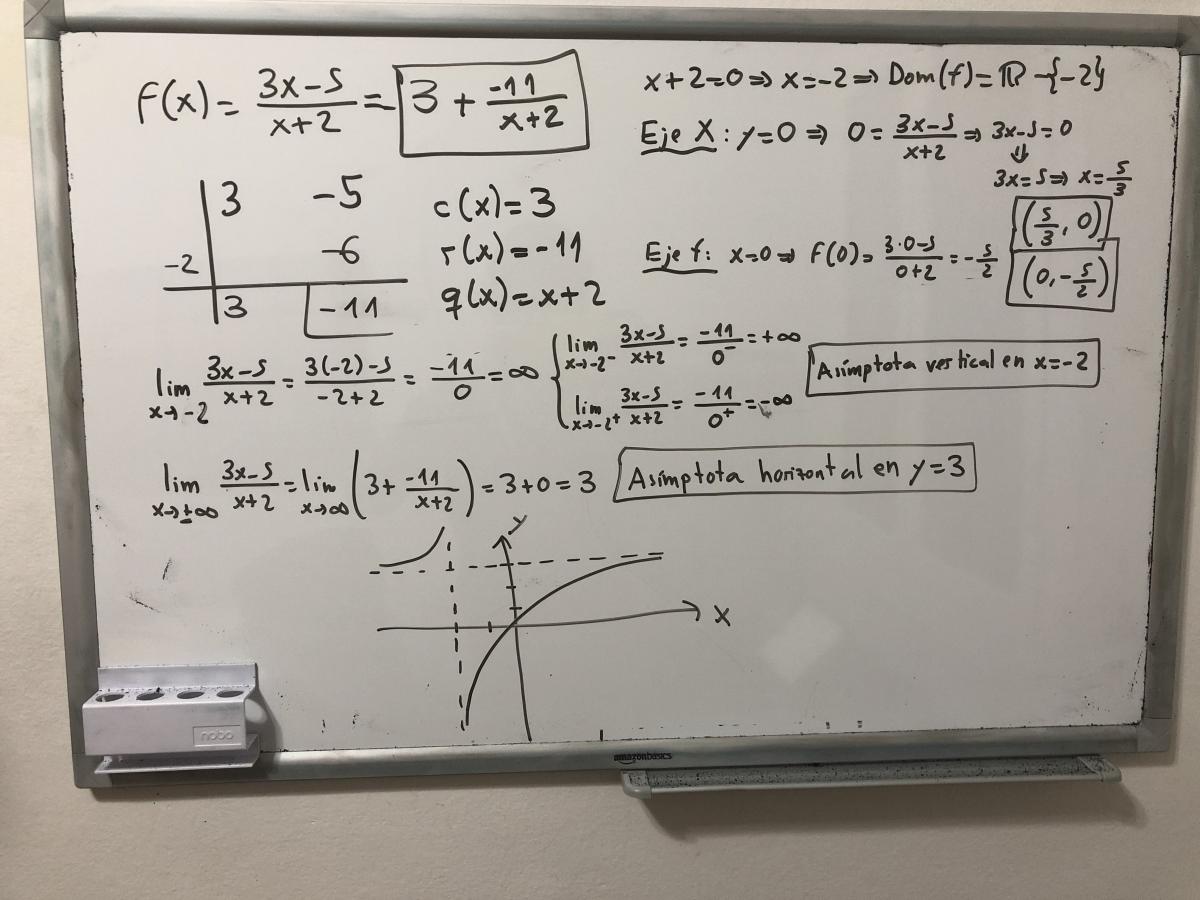 f(x) = (3x-5)/(x+2) = 3 + (-11)/(x+2)
3 -5
-2 -6
3 -11
c(x) = 3
r(x) = -11
q(x) = x+2
x+2=0 ⇒ x=-2 ⇒ Dom(f) = ℝ -{-2}
Eje X: y=0 ⇒ 0 = (3x-5)/(x+2) ⇒ 3x-5=0
⇓
3x=5 ⇒ x=5/3
(5/3, 0)
Eje f: x=0 ⇒ f(0) = (3·0-5)/(0+2) = -5/2
(0, -5/2)
lim x→-2 (3x-5)/(x+2) = (3(-2)-5)/(-2+2) = -11/0 = ∞
lim x→-2⁻ (3x-5)/(x+2) = -11/0⁻ = +∞
lim x→-2⁺ (3x-5)/(x+2) = -11/0⁺ = -∞
Asímptota vertical en x=-2
lim x→±∞ (3x-5)/(x+2) = lim x→∞ (3 + (-11)/(x+2)) = 3+0 = 3
Asímptota horizontal en y=3
y
x
nobo
amazonbasics